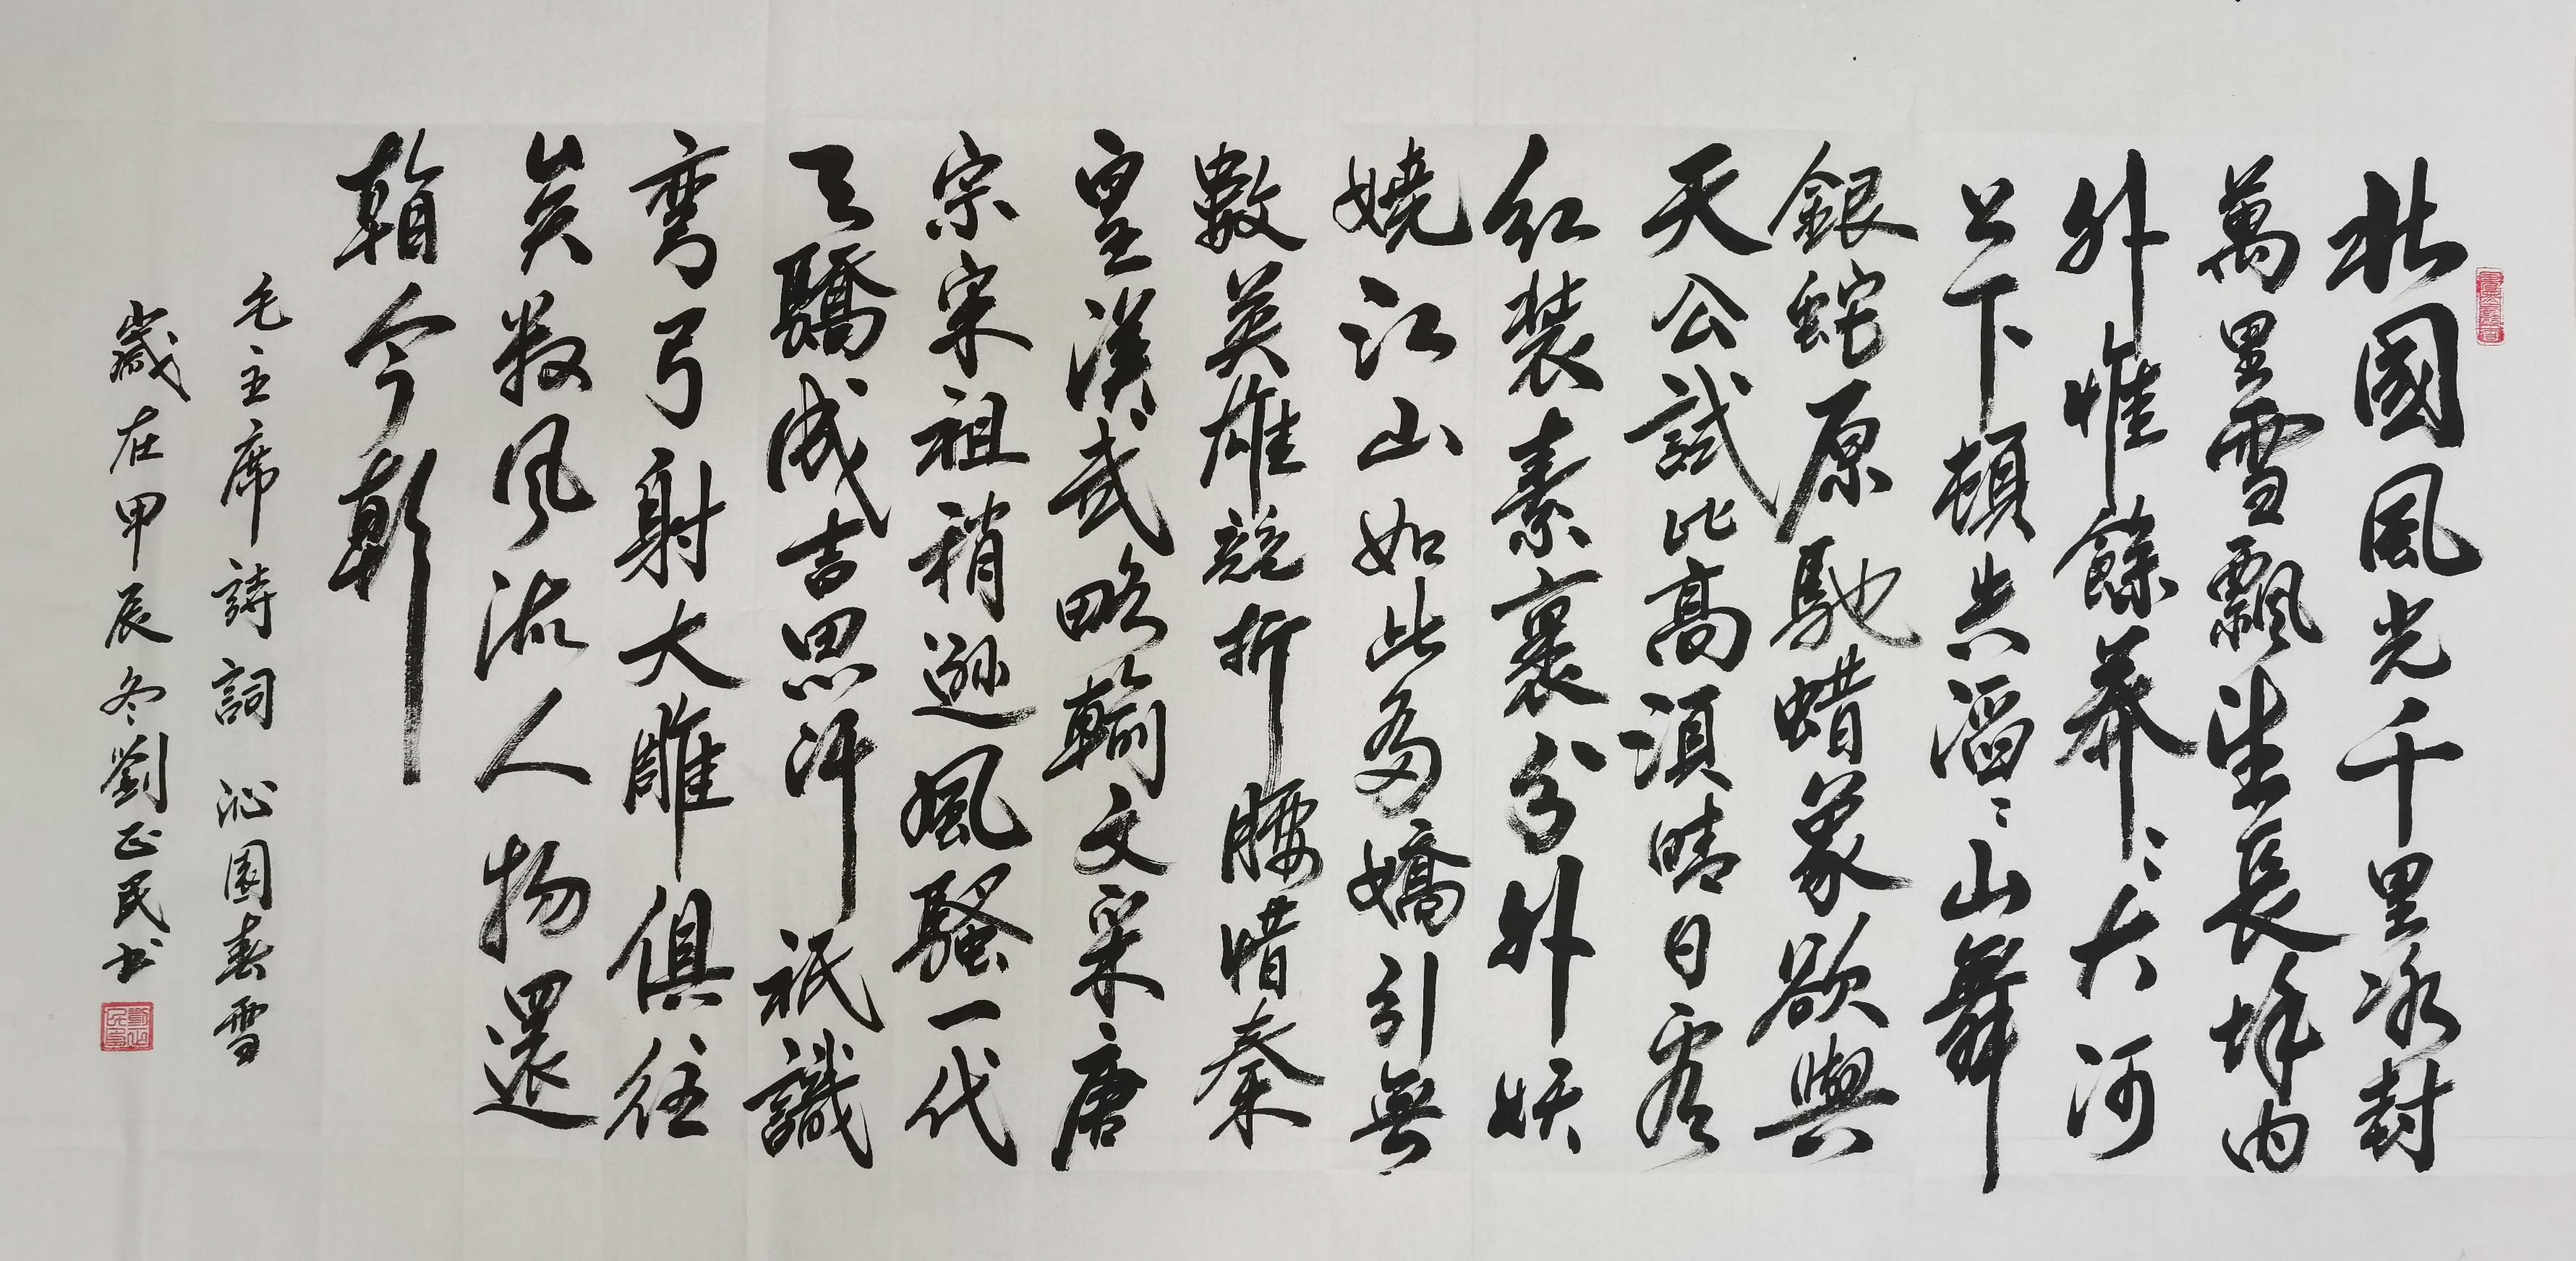 北國風光千里冰封
萬里雪飄望長城内
外惟餘莽々大河
上下頓失滔々山舞
銀蛇原馳蜡象欲與
天公試比高須晴日看
红装素裹分外妖
嬈江山如此多嬌引無
數英雄競折腰惜秦
皇漢武略輸文采唐
宗宋祖稍遜風騷一代
天驕成吉思汗祇識
弯弓射大雕俱往
矣数風流人物還
看今朝
毛主席詩詞 沁園春雪
歲在甲辰冬劉正民书